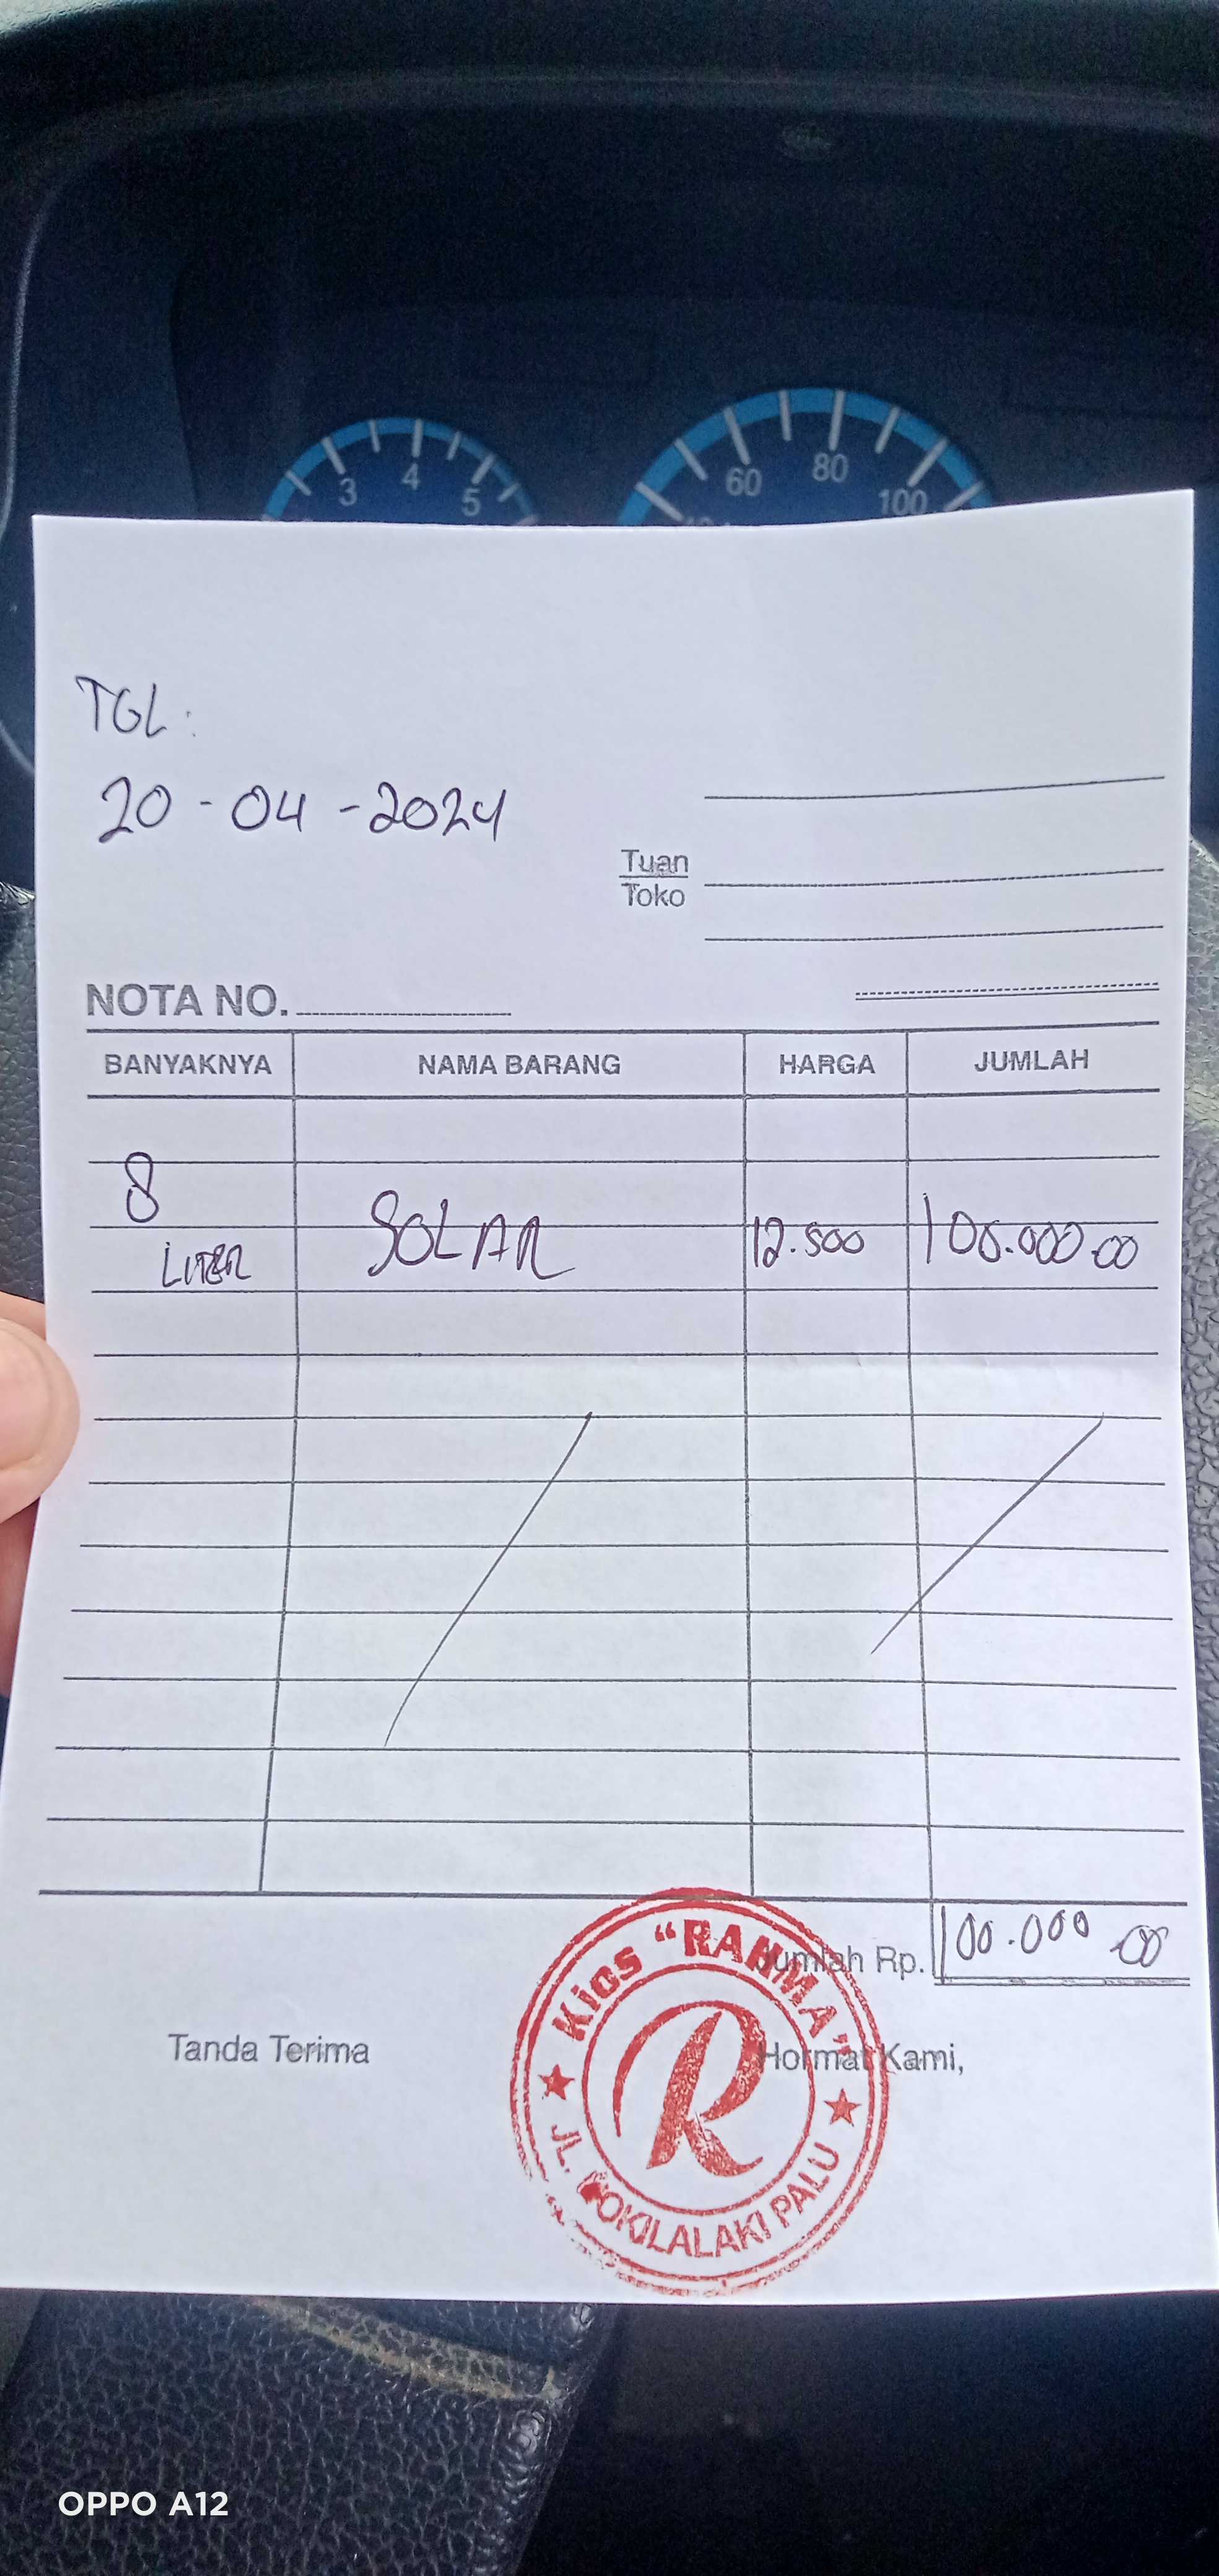 3 4 5 60 80 100
TGL:
20-04-2024
Tuan
Toko
NOTA NO.
BANYAKNYA NAMA BARANG HARGA JUMLAH
8 LITER SOLAR 12.500 100.000.00
Jumlah Rp. 100.000.00
Tanda Terima Hormat Kami,
Kios "RAHMA"
R
JL. NOKILALAKI PALU
OPPO A12